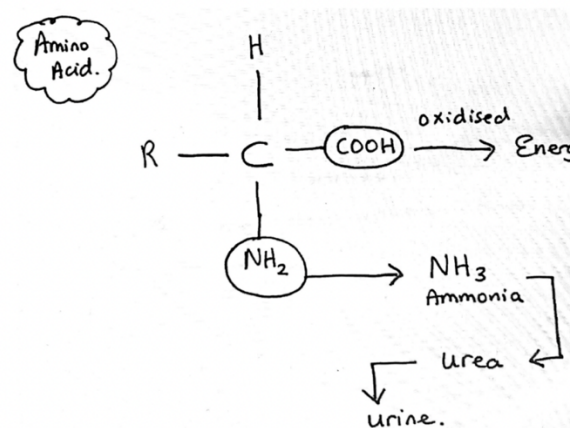 Amino
Acid.
H
R — C — COOH oxidised → Energ
NH2 → NH3
Ammonia
urea
urine.